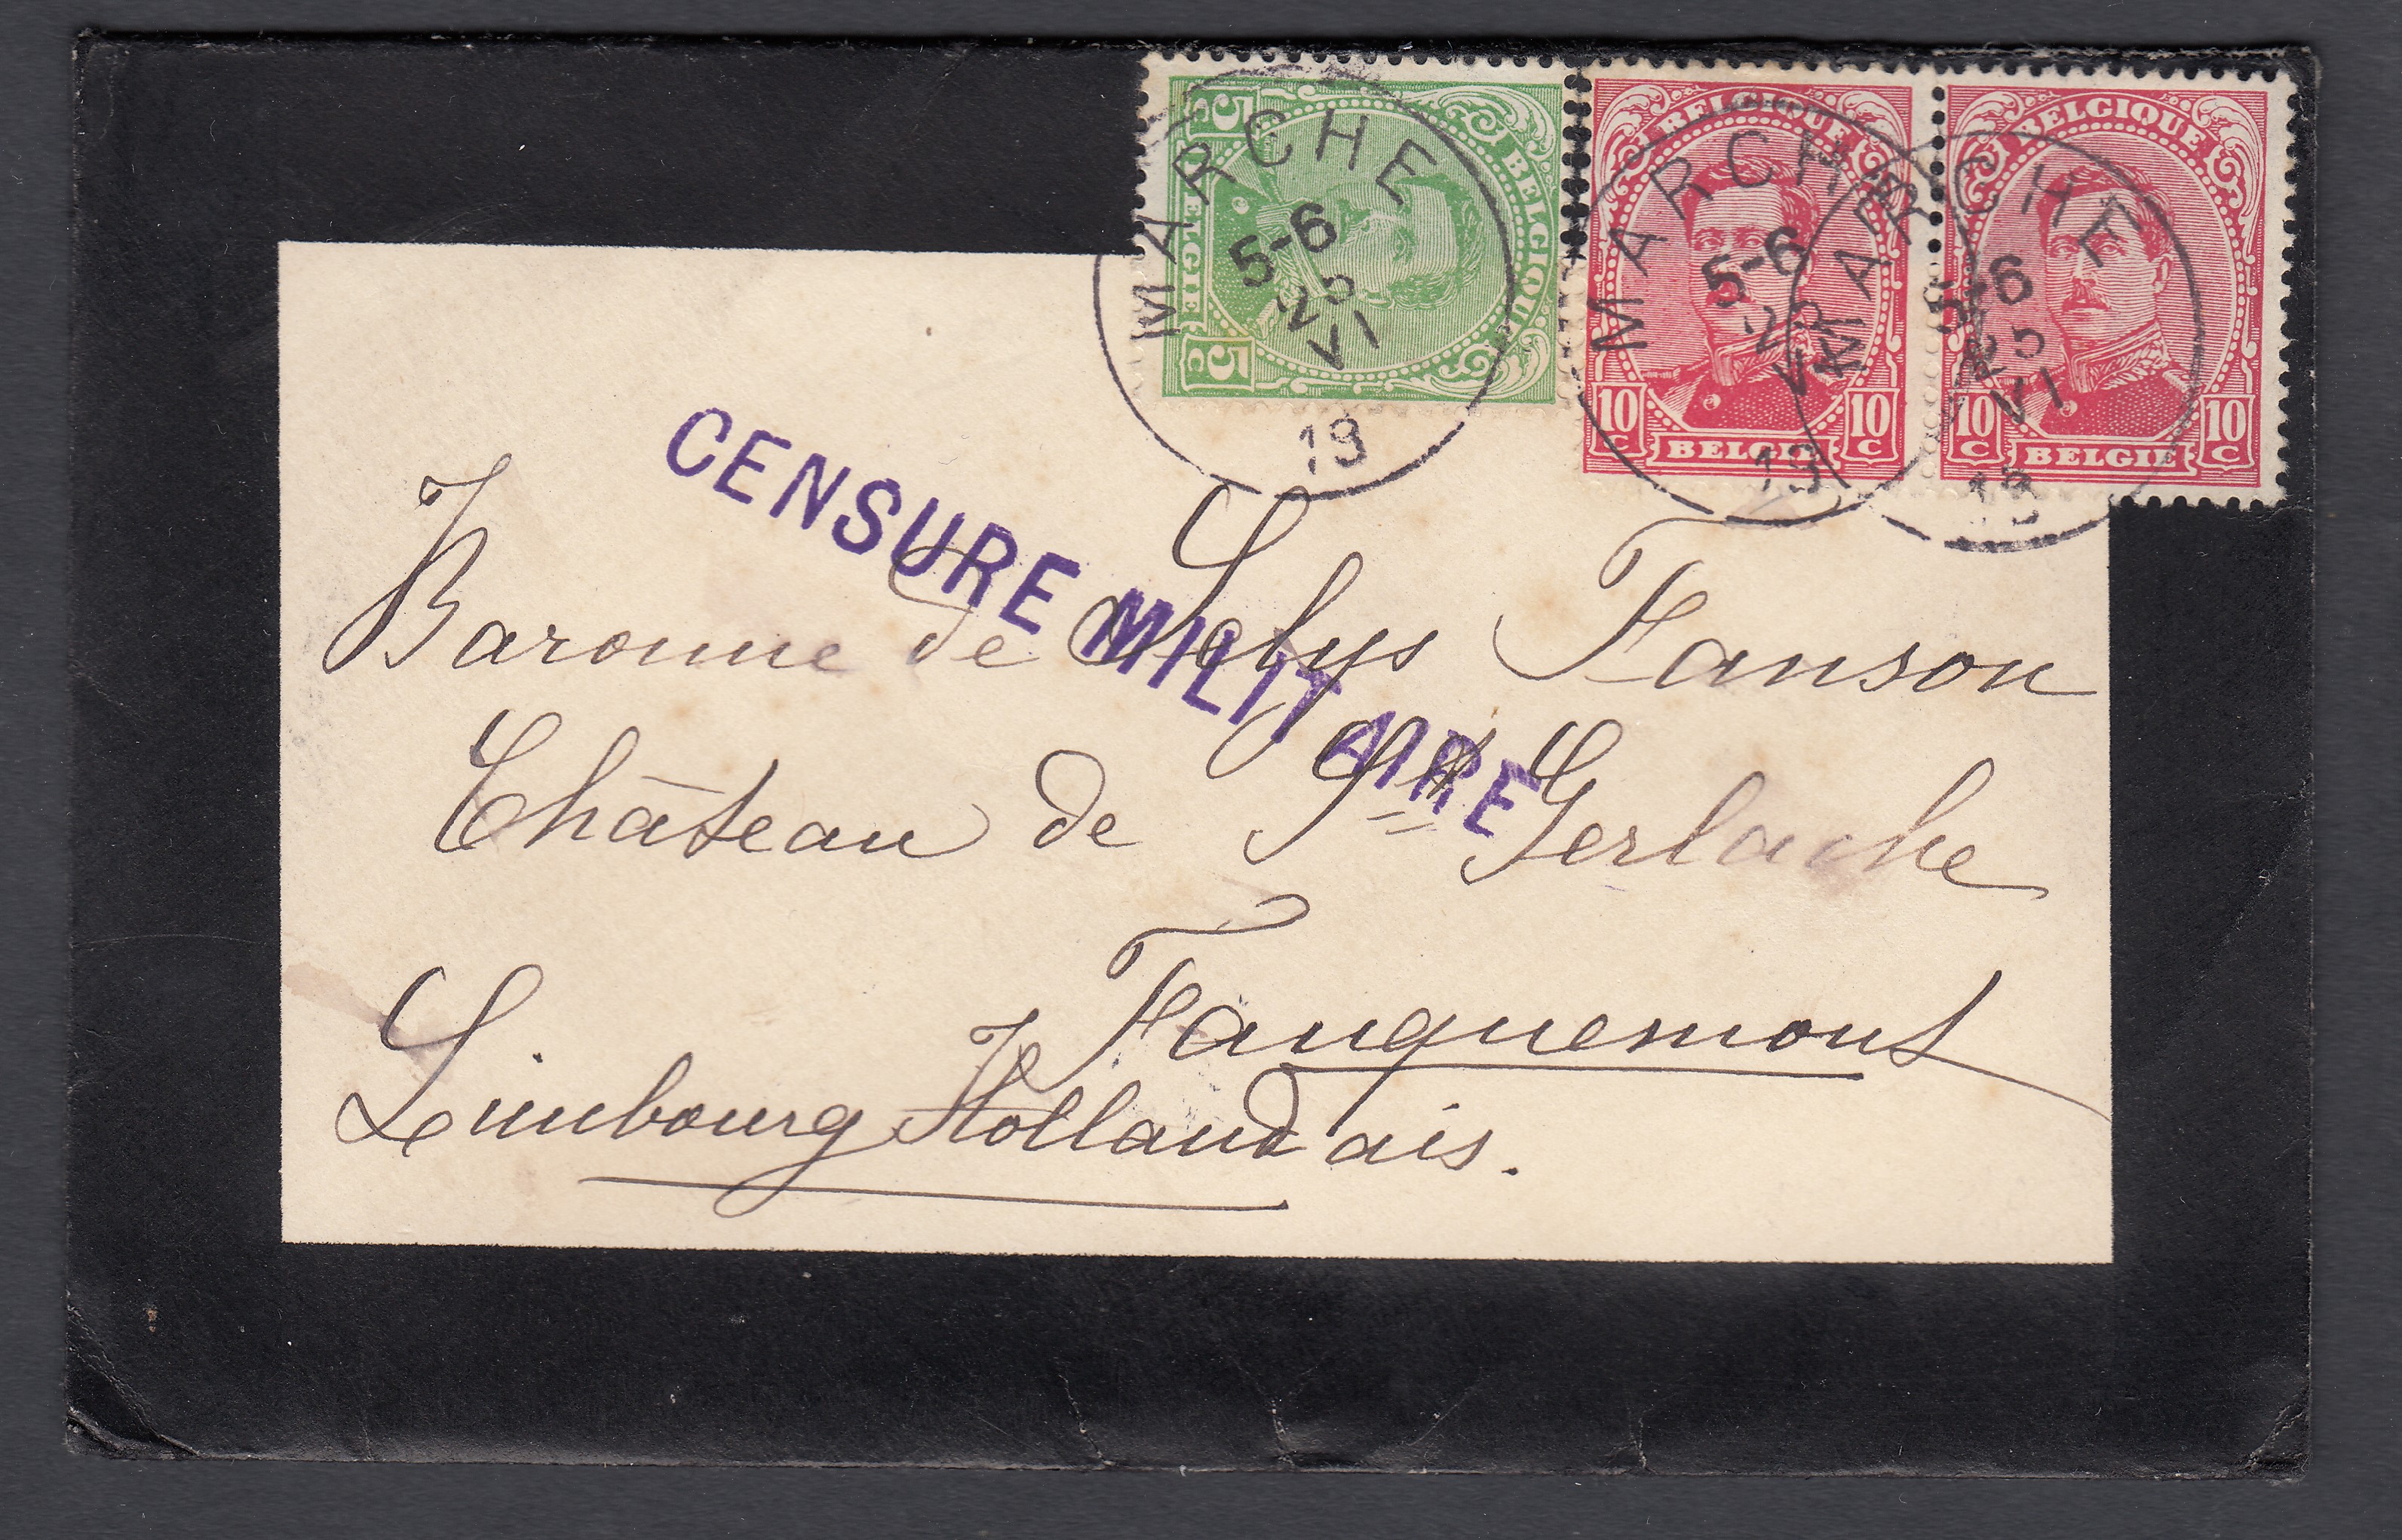 5 BELGIQUE
BELGIË 5c
BELGIQUE
10c BELGIE 10c
BELGIQUE
10c BELGIE 10c
MARCHE
5-6
25
VI
19
MARCHE
5-6
VI
19
MARCHE
5-6
25
VI
19
CENSURE MILITAIRE
Baronne de Selys Fanson
Château de St Gerlache
Fauquemont
Limbourg Hollandais.